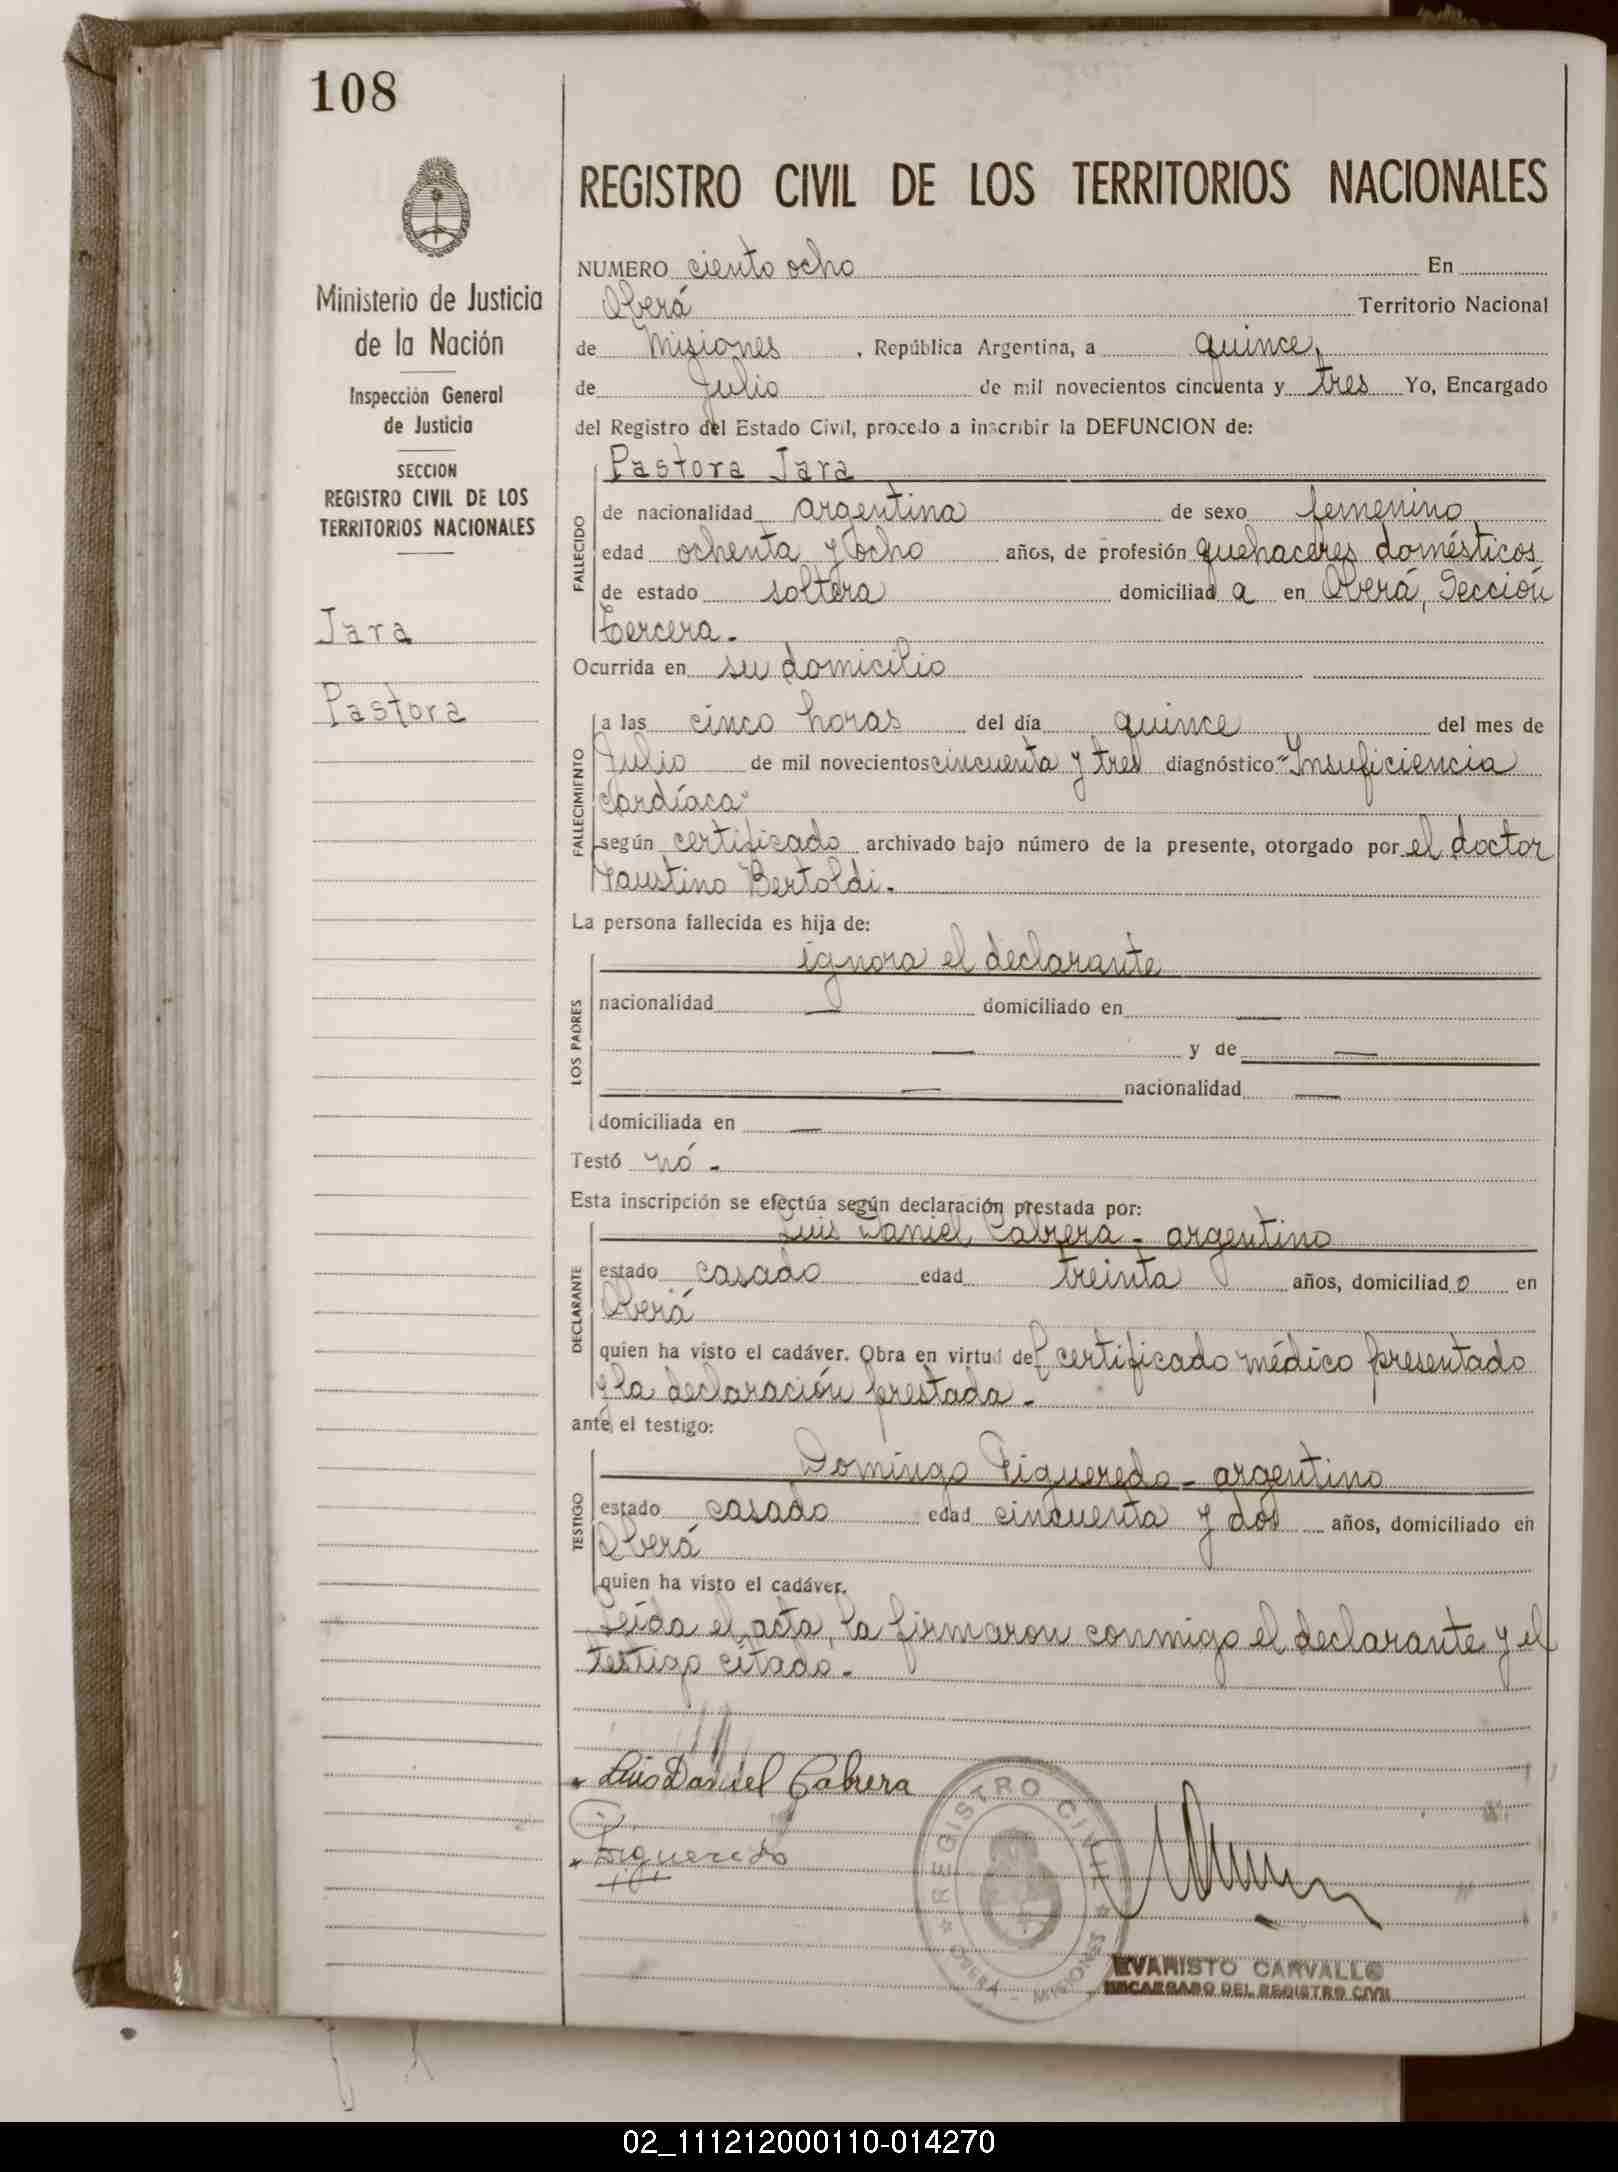 108
Ministerio de Justicia
de la Nación
Inspección General
de Justicia
SECCION
REGISTRO CIVIL DE LOS
TERRITORIOS NACIONALES
Jara
Pastora
REGISTRO CIVIL DE LOS TERRITORIOS NACIONALES
NUMERO ciento ocho En
Oberá Territorio Nacional
de Misiones , República Argentina, a quince,
de Julio de mil novecientos cincuenta y tres Yo, Encargado
del Registro del Estado Civil, procedo a inscribir la DEFUNCION de:
Pastora Jara
FALLECIDO
de nacionalidad argentina de sexo femenino
edad ochenta y ocho años, de profesión quehaceres domésticos
de estado soltera domiciliad a en Oberá, Sección
tercera.-
Ocurrida en su domicilio
FALLECIMIENTO
a las cinco horas del día quince del mes de
Julio de mil novecientos cincuenta y tres diagnóstico "Insuficiencia
Cardíaca"
según certificado archivado bajo número de la presente, otorgado por el doctor
Faustino Bertoldi.-
La persona fallecida es hija de:
LOS PADRES
ignora el declarante
nacionalidad — domiciliado en —
— y de —
— nacionalidad —
domiciliada en —
Testó nó.-
Esta inscripción se efectúa según declaración prestada por:
DECLARANTE
Luis Daniel Cabrera - argentino
estado casado edad treinta años, domiciliad o en
Oberá
quien ha visto el cadáver. Obra en virtud del certificado médico presentado
y la declaración prestada.-
ante el testigo:
TESTIGO
Domingo Figueredo - argentino
estado casado edad cincuenta y dos años, domiciliado en
Oberá
quien ha visto el cadáver.
Leída el acta, la firmaron conmigo el declarante y el
testigo citado.-
Luis Daniel Cabrera
Figueredo
REGISTRO CIVIL
OBERA - MISIONES
EVARISTO CARVALLO
ENCARGADO DEL REGISTRO CIVIL
02_111212000110-014270